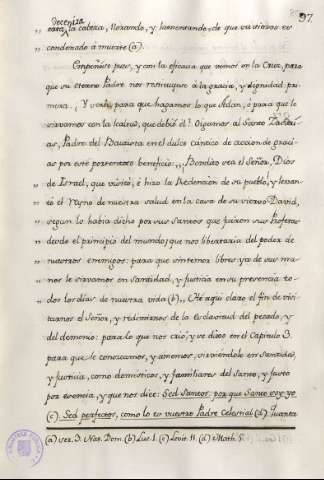 97
decencia
cara, la cabeza, llorando, y lamentandose de que va vive en
condenado à muerte (a).
Compeñose pues, y con la eficacia que vimos en la Cruz, para
que su eterno Padre nos restituyese à la gracia, y dignidad
primera. ¿Y sería para que hagamos lo que Adan, ò para que le
sirvamos con la lealtad, que debió él? Oigamos al Santo Zacharí-
as, Padre del Bautista en el dulce cántico de accion de graci-
as por este portentoso beneficio: „¡Bendito sea el Señor, Dios
„ de Israel, que visitó, è hizo la Redencion de su pueblo! y levan-
„ tó el Reyno de nuestra salud en la casa de su siervo David,
„ segun lo habia dicho por sus Santos que fueron sus Profetas
„ desde el principio del mundo; que nos libertaría del poder de
„ nuestros enemigos: para que sin temor libres ya de sus ma-
„ nos le sirvamos en Santidad, y Justicia en su presencia to-
„ dos los dias de nuestra vida (b)„ He aqui claro el fin de visi-
tarnos el Señor, y redimirnos de la esclavitud del pecado, y
del demonio: para lo que nos crió, y se dixo en el Capitulo 3.
para que le conozcamos, y amemos, sirviendole en santidad,
y Justicia, como domesticos, y familiares del Santo, y Justo
por esencia, y que nos dice: Sed Santos, por que Santo soy yo
(c) Sed perfectos, como lo es vuestro Padre Celestial (d) Quanta
(a) ser. 3. Nat. Dom. (b) Luc. 1. (c) Levit. 11. (d) Math. 5.